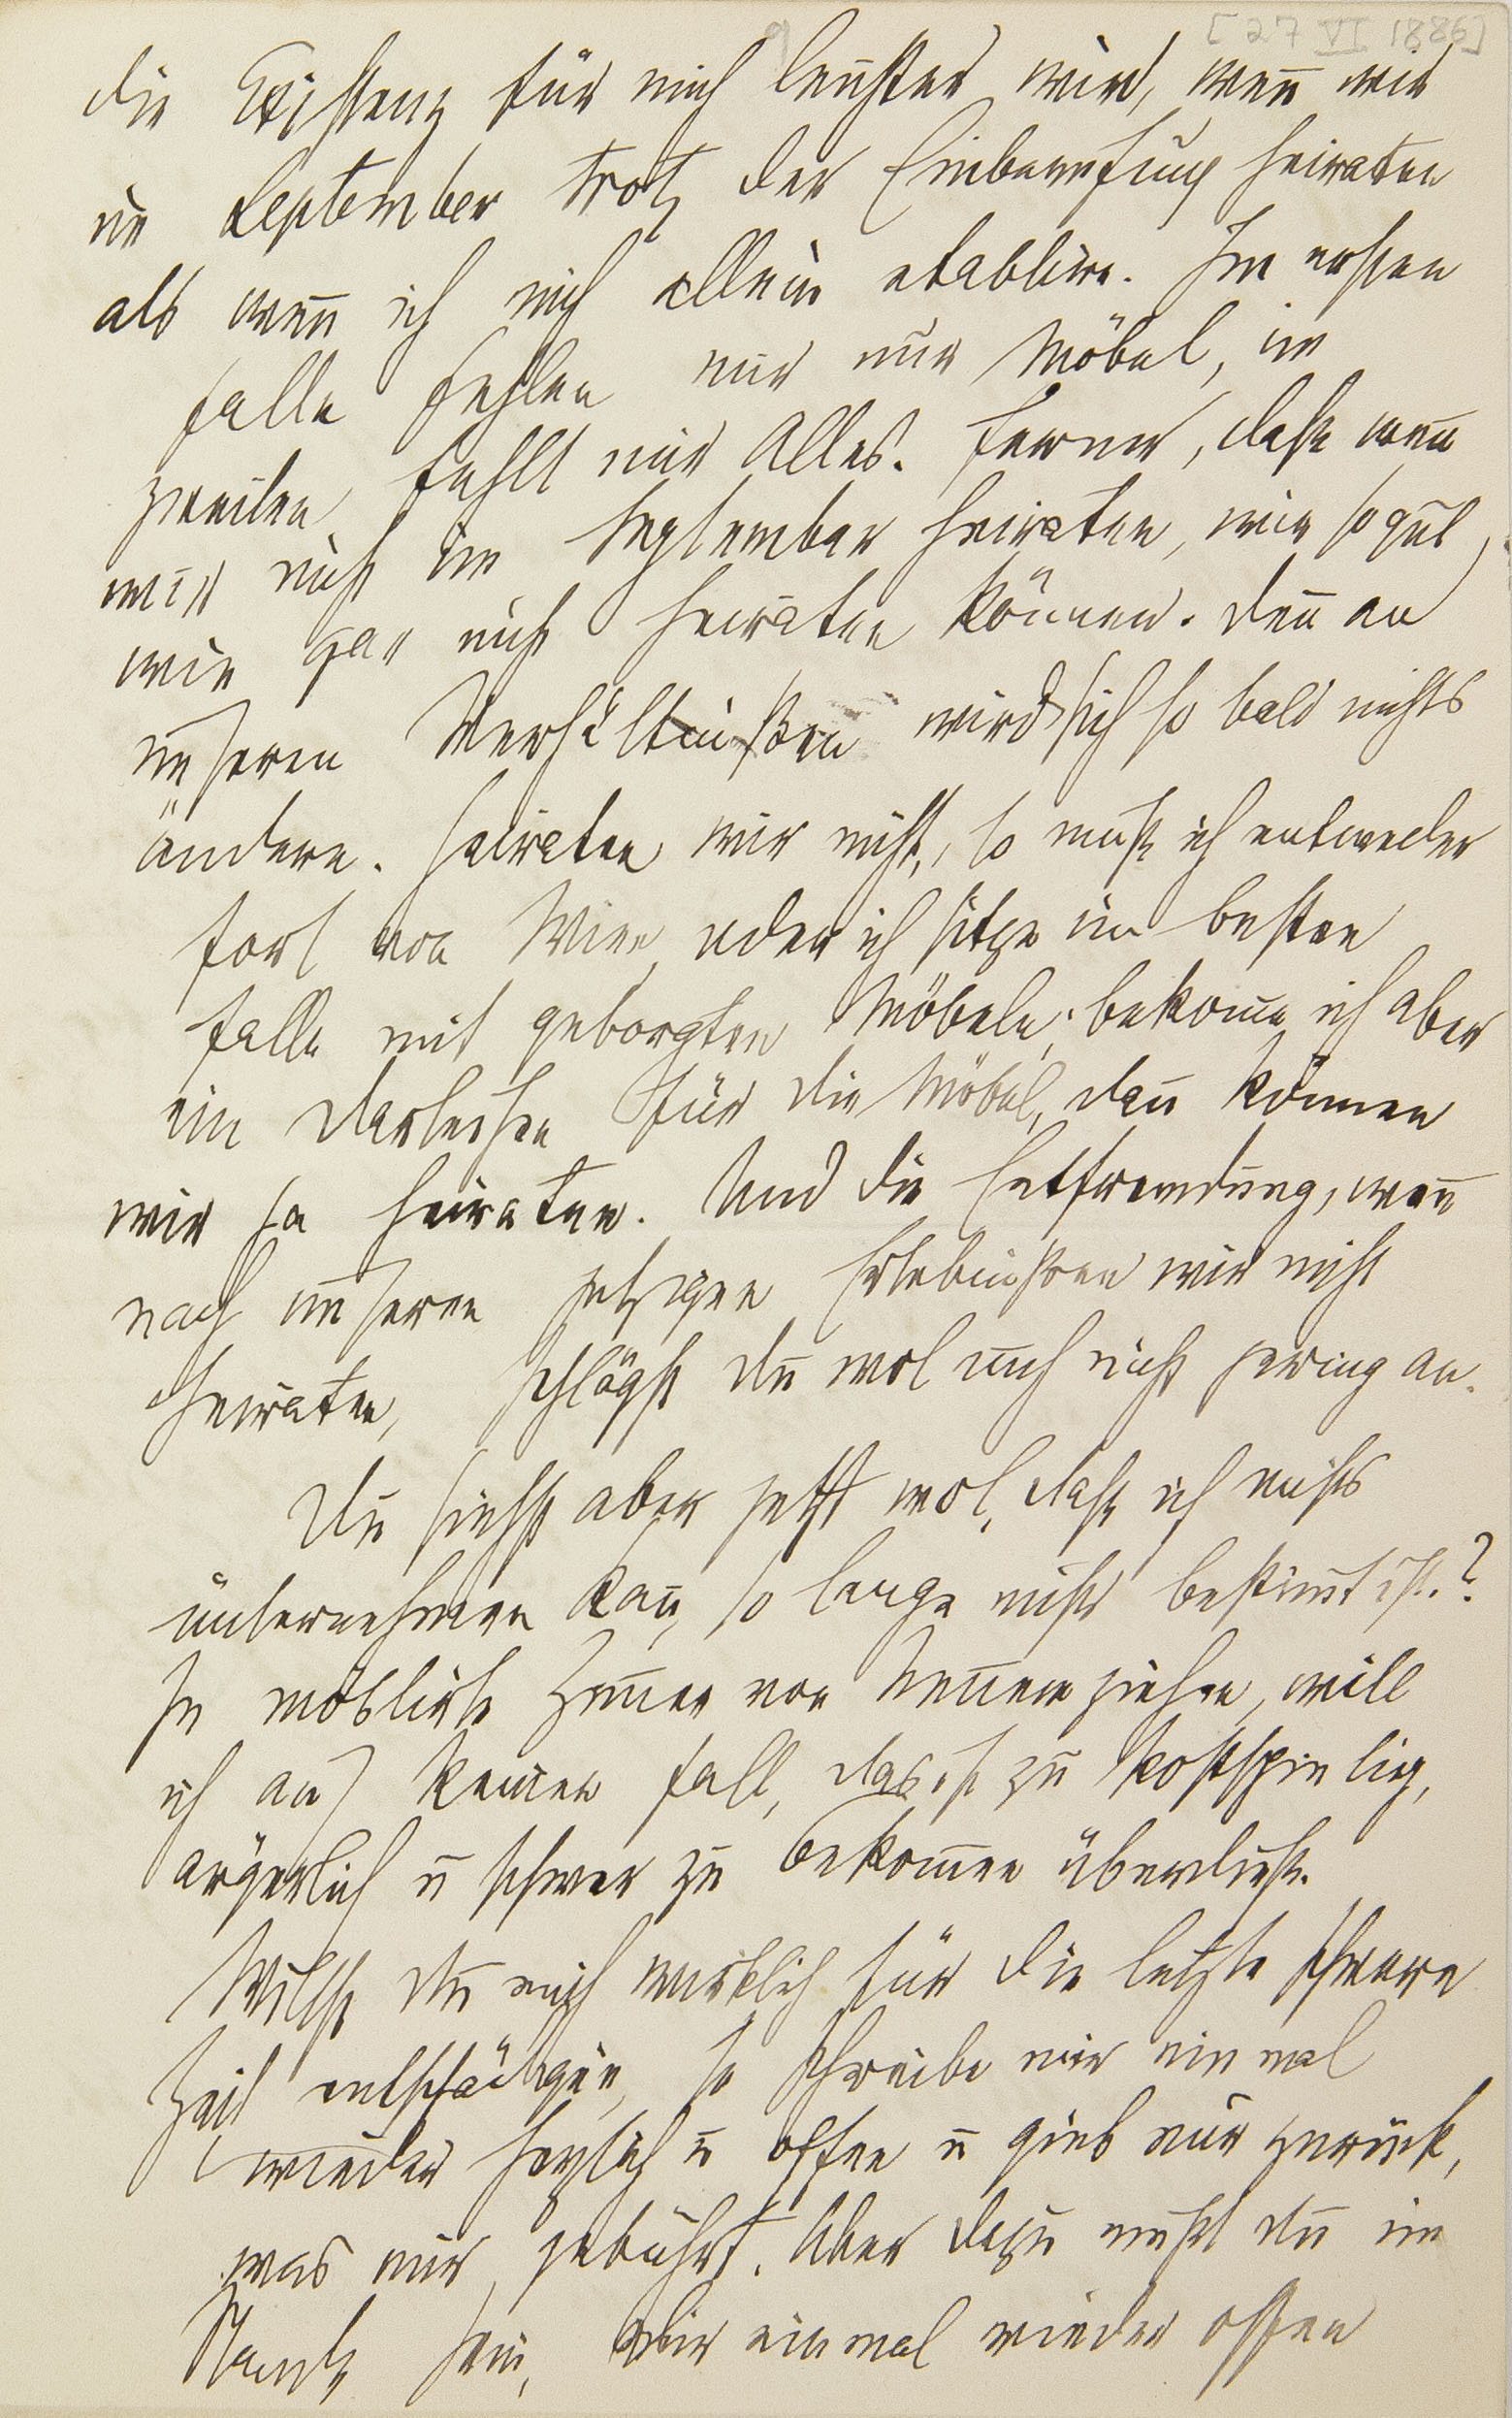 [27 VI 1886]
die Existenz für mich leichter wird, wen̄ wir
im September trotz der Einberufung heiraten
als wen̄ ich mich allein etablire. Im ersten
Falle fehlen mir nur Möbel, im
zweiten fehlt mir Alles. Ferner, daß wen̄
wir nicht im September heiraten, wir so gut
wie gar nicht heiraten können. Den̄ an
unseren Verhältnißen wird sich so bald nichts
ändern. Heiraten wir nicht, so muß ich entweder
fort von Wien oder ich sitze im besten
Falle mit geborgten Möbeln; bekom̄e ich aber
ein Darlehen für die Möbel, dan̄ können
wir ja heiraten. Und die Entfremdung, wen̄
nach unseren jetzigen Erlebnißen wir nicht
heiraten, schlägst Du wol auch nicht gering an.
Du siehst aber jetzt wol, daß ich nichts
unternehmen kan̄, so lange nichts bestim̄t ist.?
In möblirte Zim̄er von Neuem ziehen, will
ich auf keinen Fall, das ist zu kostspielig,
ärgerlich u schwer zu bekom̄en überdieß.
Willst Du mich wirklich für die letzte schwere
Zeit entschädigen, so schreibe mir einmal
wieder herzlich u offen u gieb mir zurück,
was mir gebührt. Aber dazu mußt Du im
Stande sein, Dir einmal wieder offen